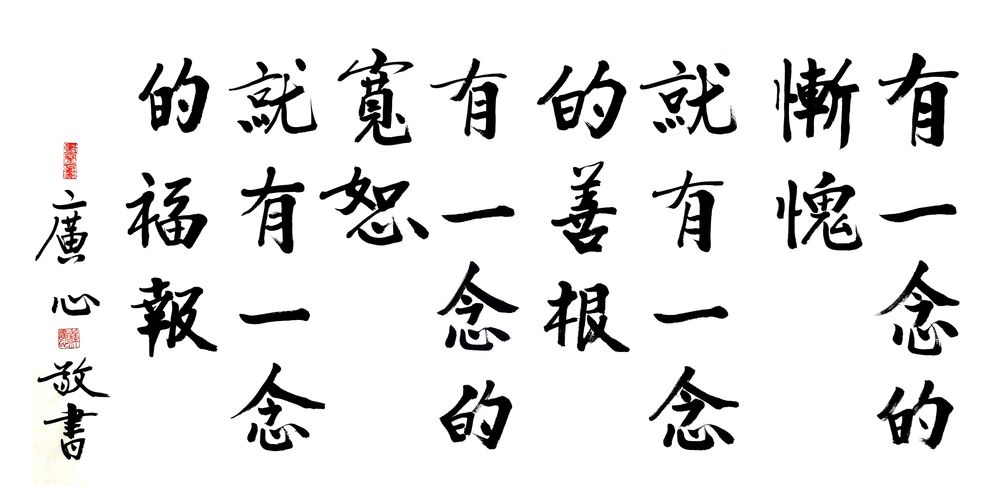 有一念的
慚愧
就有一念
的善根
有一念的
寬恕
就有一念
的福報
廣心敬書